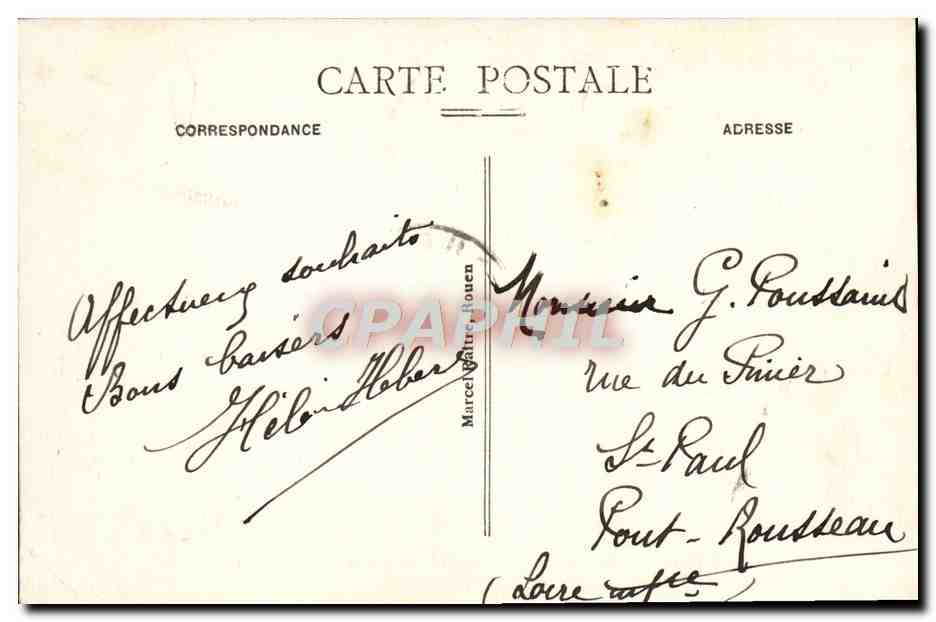 CARTE POSTALE
CORRESPONDANCE
ADRESSE
Affectueux souhaits
Bons baisers
Hébert
Marcel Maître, Rouen
Monsieur G. Poussaint
rue du Pinier
St Paul
Pont-Rousseau
(Loire infre)
CPAPHIL